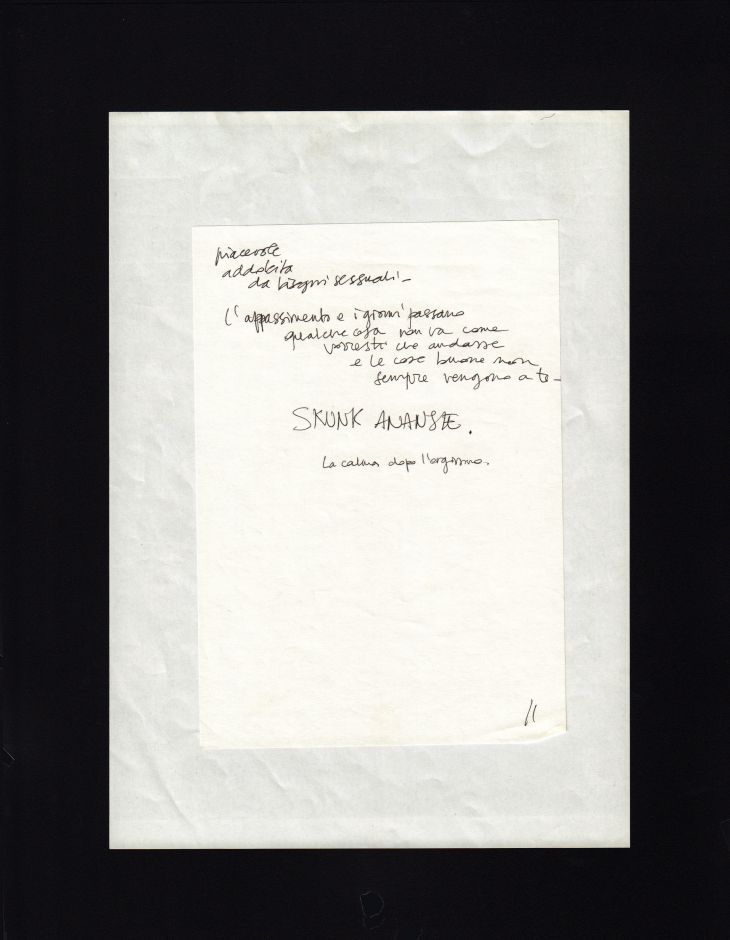 piacevole
addolcita
da bisogni sessuali -
L'appassimento e i giorni passano
qualche cosa non va come
vorresti che andasse
e le cose buone non
sempre vengono a te -
SKUNK ANANSIE.
La calma dopo l'orgasmo.